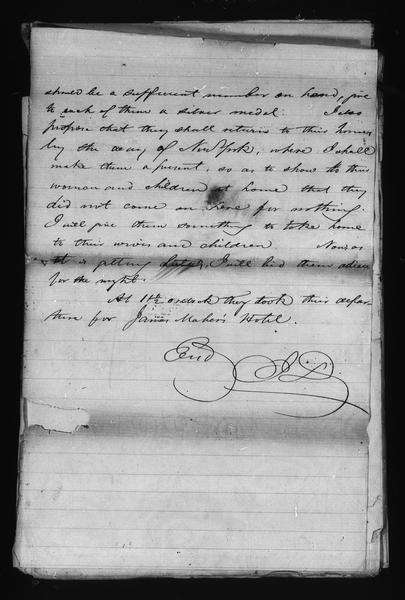 should be a sufficient number on hand, give
to each of them a silver medal. I also
propose that they shall return to their homes
by the way of New York, where I shall
make them a present, so as to show to their
woman and children at home that they
did not come on here for nothing
I will give them something to take home
to their wives and children Now as
it is getting late, I will bid them adieu
for the night.
At 11½ o'clock they took their depar
ture for James Maher's Hotel.
End